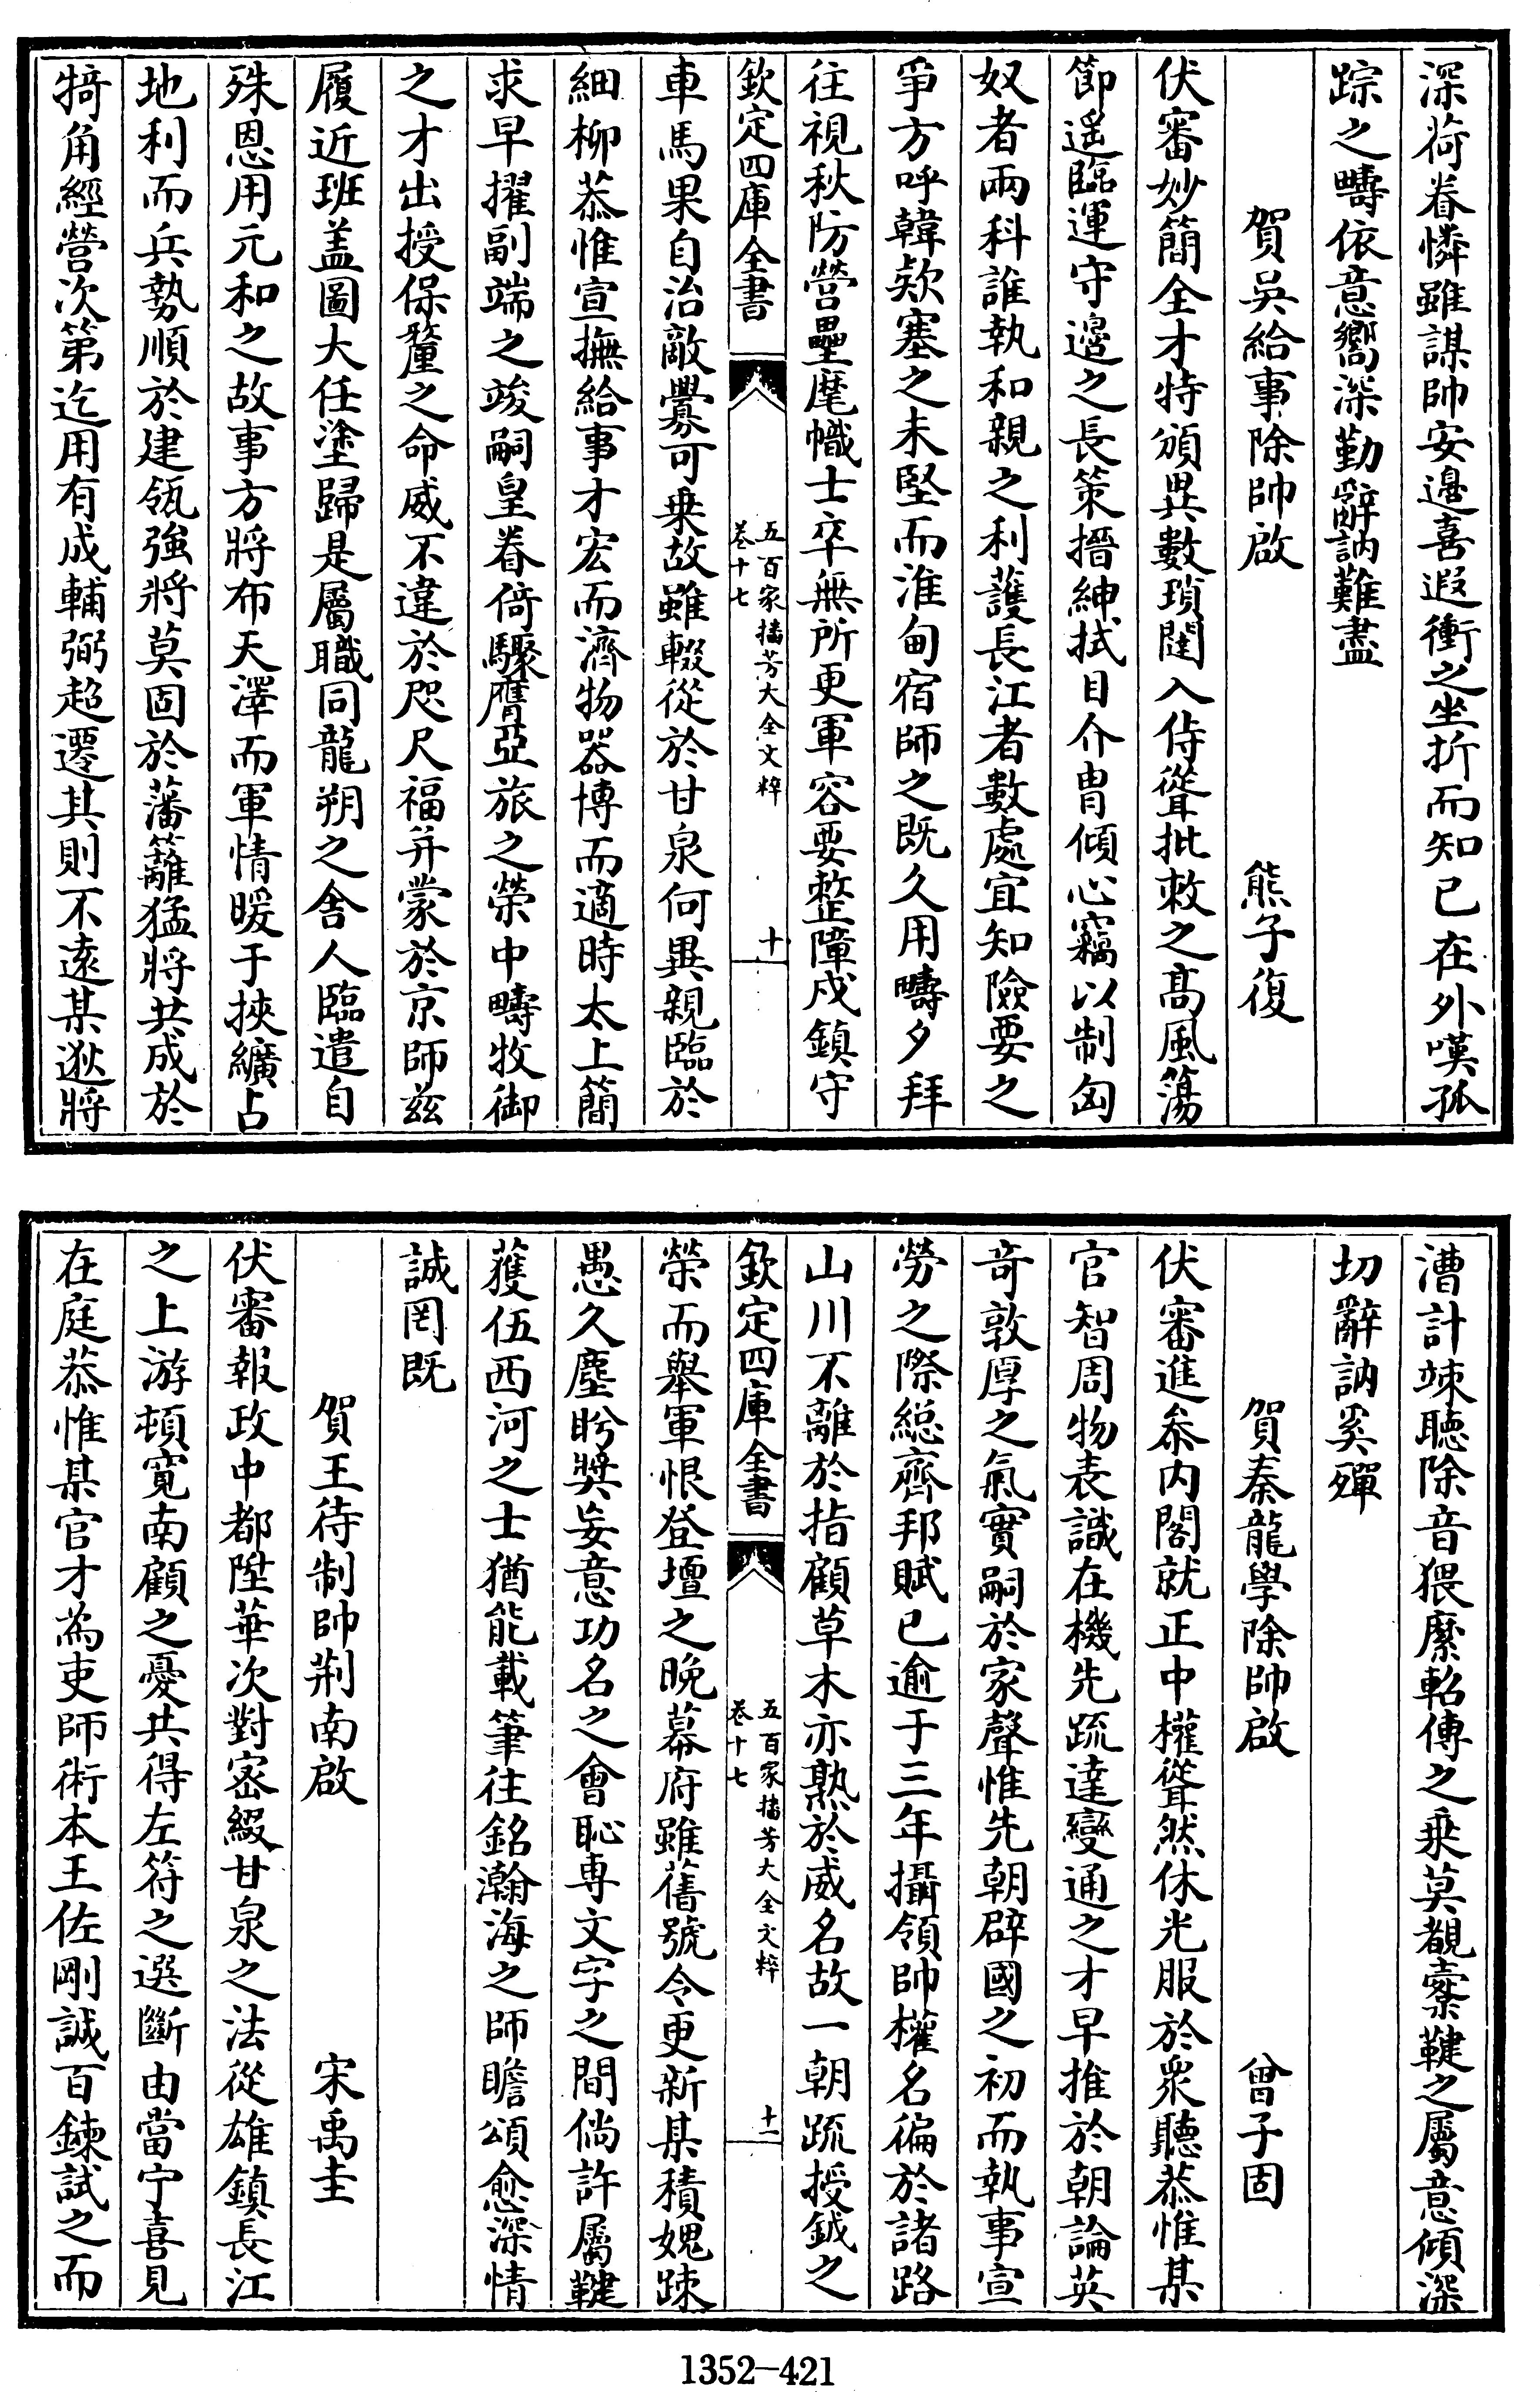 深荷眷憐雖謀帥安邊喜遐衝之坐折而知已在外嘆孤
踪之疇依意嚮深勤辭訥難盡
賀吳給事除帥啟 熊子復
伏審妙簡全才特頒異數瑣闥入侍聳批敕之髙風籓
節遥臨運守邊之長策搢紳拭目介胄傾心竊以制匈
奴者兩科誰執和親之利護長江者數處宜知險要之
爭方呼韓欵塞之未堅而淮甸宿師之既久用疇夕拜
往視秋防營壘麾幟士卒無所更軍容要整障戍鎮守
欽定四庫全書
五百家播芳大全文粹
卷十七
十
車馬果自治敵釁可乗故雖輟從於甘泉何異親臨於
細柳恭惟宣撫給事才宏而濟物器博而適時太上簡
求早擢副端之竣嗣皇眷倚驟膺亞旅之榮中疇牧御
之才出授保釐之命威不違於咫尺福并蒙於京師兹
履近班盖圖大任塗歸是屬職同龍朔之舍人臨遣自
殊恩用元和之故事方將布天澤而軍情暖于挾纊占
地利而兵勢順於建瓴強將莫固於藩籬猛將共成於
犄角經營次第迄用有成輔弼超遷其則不逺某逖將
漕計竦聽除音猥縻軺傳之乗莫覩櫜鞬之屬意傾深
切辭訥奚殫
賀秦龍學除帥啟 曾子固
伏審進叅内閣就正中權聳然休光服於衆聽恭惟某
官智周物表識在機先疏達變通之才早推於朝論英
奇敦厚之氣實嗣於家聲惟先朝辟國之初而執事宣
勞之際縂齊邦賦已逾于三年攝領帥權名徧於諸路
山川不離於指顧草木亦熟於威名故一朝疏授鉞之
欽定四庫全書
五百家播芳大全文粹
卷十七
十一
榮而舉軍恨登壇之晚幕府雖舊號令更新某積媿踈
愚久塵盻奬妄意功名之會恥専文字之間倘許屬鞬
獲伍西河之士猶能載筆往銘瀚海之師瞻頌愈深情
誠罔既
賀王待制帥荆南啟 宋禹圭
伏審報政中都陞華次對宻綴甘泉之法從雄鎮長江
之上游頓寛南顧之憂共得左符之選斷由當宁喜見
在庭恭惟某官才為吏師術本王佐剛誠百鍊試之而
1352-421